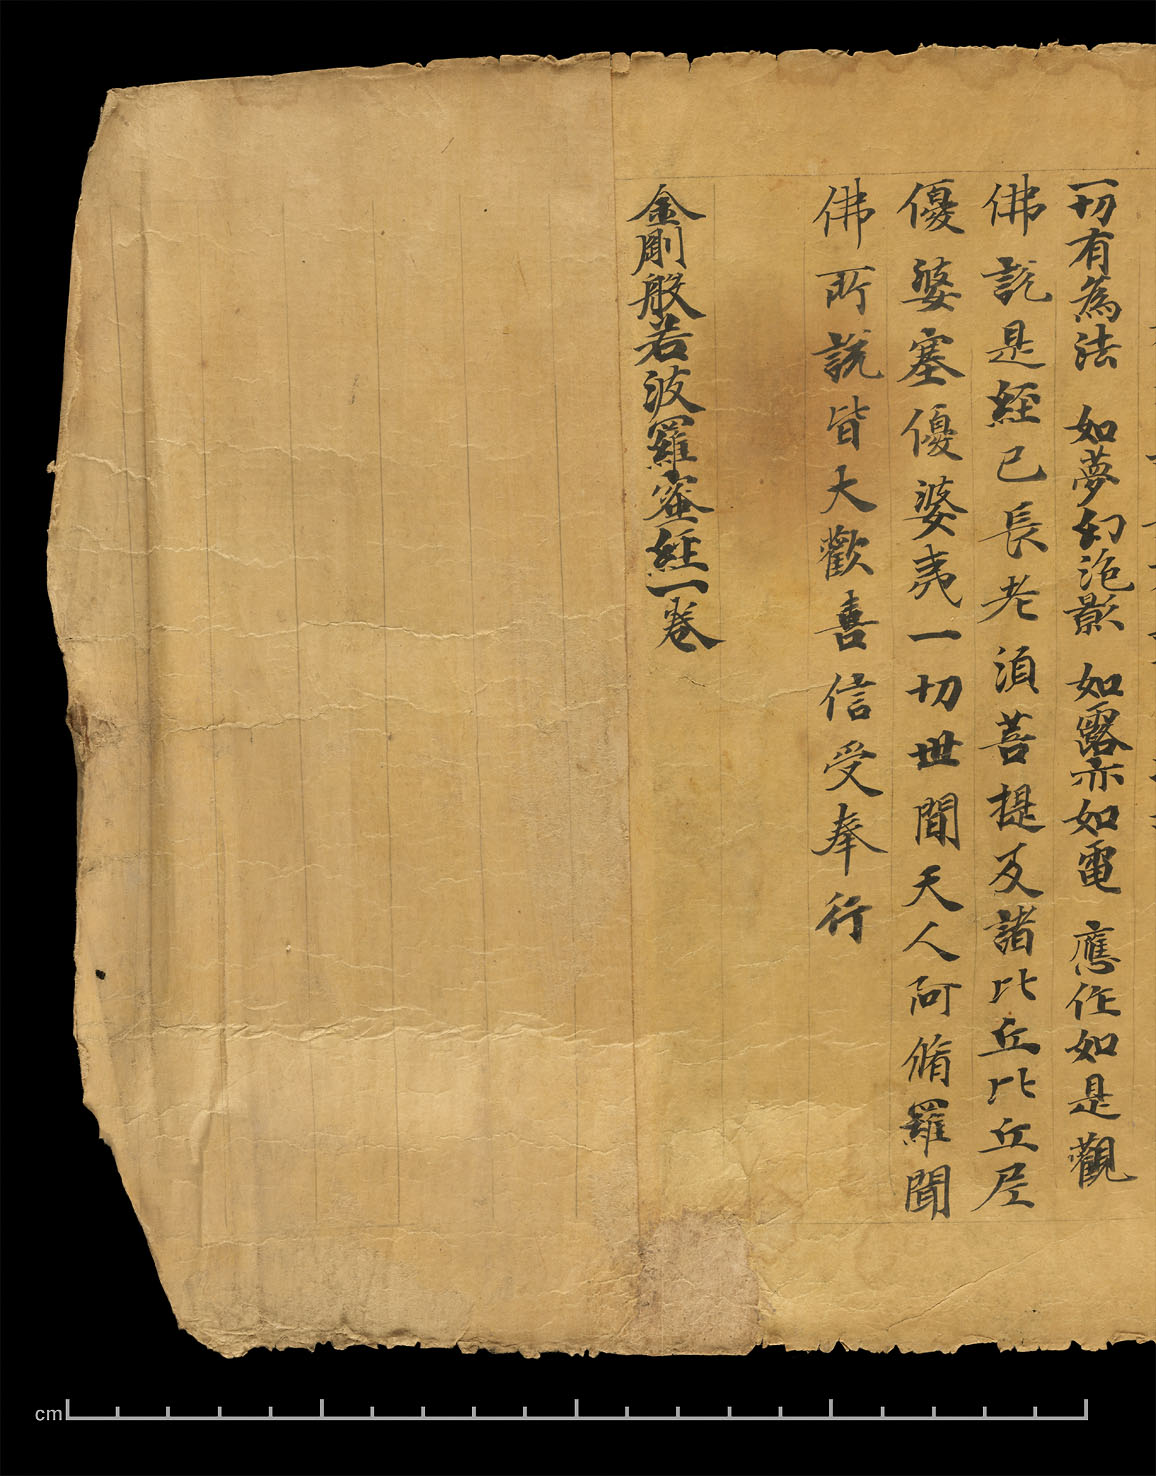 一切有為法　如夢幻泡影　如露亦如電　應作如是觀
佛說是經已長老須菩提及諸比丘比丘尼
優婆塞優婆夷一切世間天人阿脩羅聞
佛所說皆大歡喜信受奉行
金剛般若波羅蜜經一卷
cm